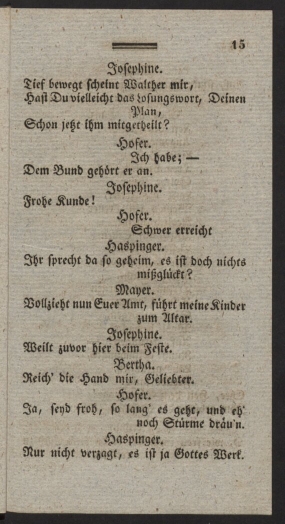 15
Josephine.
Tief bewegt scheint Walther mir,
Hast Du vielleicht das Losungswort, Deinen
Plan,
Schon jetzt ihm mitgetheilt?
Hofer.
Ich habe; —
Dem Bund gehört er an.
Josephine.
Frohe Kunde!
Hofer.
Schwer erreicht
Haspinger.
Ihr sprecht da so geheim, es ist doch nichts
mißglückt?
Mayer.
Vollzieht nun Euer Amt, führt meine Kinder
zum Altar.
Josephine.
Weilt zuvor hier beim Feste.
Bertha.
Reich' die Hand mir, Geliebter.
Hofer.
Ja, seyd froh, so lang' es geht, und eh'
noch Stürme dräu'n.
Haspinger.
Nur nicht verzagt, es ist ja Gottes Werk.